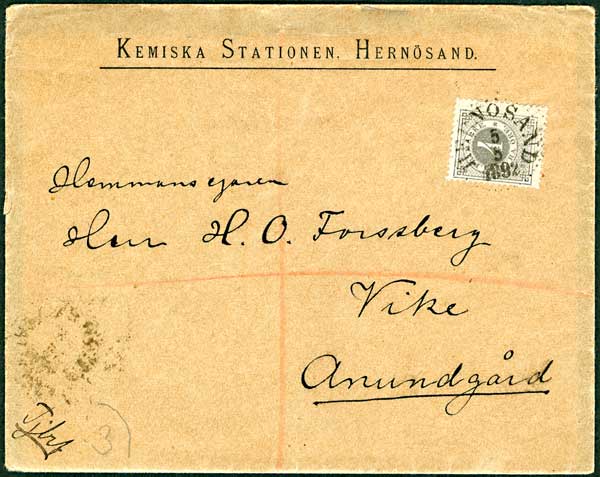 KEMISKA STATIONEN, HERNÖSAND.
HERNÖSAND
5
5
1892
4
Hemmansegaren
Herr H. O. Forssberg
Vike
Anundgård
Tjbrf
3